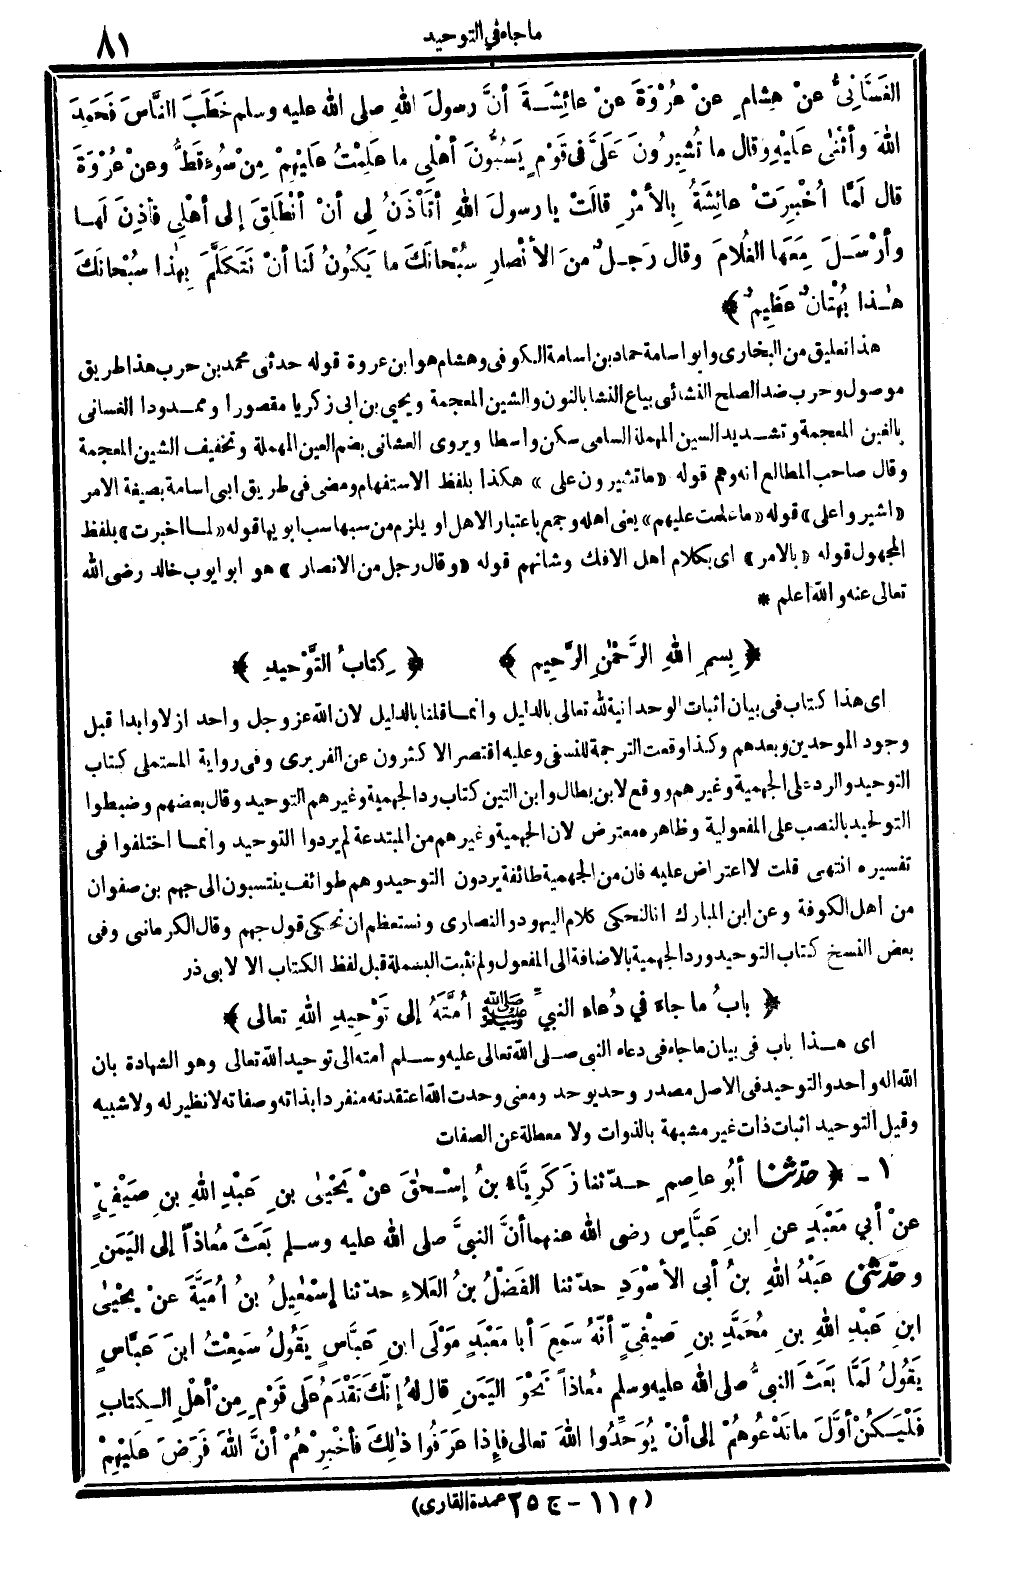 ما جاء في التوحيد
٨١
الغَسَّانِيُّ عنْ هِشامٍ عنْ عُرْوَةَ عنْ عائِشَةَ أنَّ رسولَ اللهِ صلى الله عليه وسلم خَطَبَ النَّاسَ فَحَمِدَ
اللهَ وأثْنَى عَلَيْهِ وقال ما تُشِيرُونَ عَلَىَّ فى قَوْمٍ يَسُبُّونَ أهْلِى ما عَلِمْتُ عليْهِمْ مِنْ سُوءٍ قَطُّ وعنْ عُرْوَةَ
قال لَمَّا اُخْبِرَتْ عائِشَةُ بِالأمْرِ قالَتْ يا رسولَ اللهِ أتَأْذَنُ لِى أنْ أنْطَلِقَ إلى أهْلِى فأذِنَ لَهـا
وأرْسَـلَ مَعَها الغُلامَ وقال رَجـلٌ منَ الأنْصارِ سُبْحانَكَ ما يَكُونُ لَنا أنْ نَتَكَلَّمَ بِهٰذا سُبْحانَكَ
هـٰذا بُهْتانٌ عَظِيمٌ ﴾
هذا تعليق من البخارى وابو اسامة حماد بن اسامة الكوفى وهشام هو ابن عروة قوله حدثنى محمد بن حرب هذا طريق
موصول وحرب ضد الصلح النشائى بياع النشا بالنون والشين المعجمة ويحيى بن ابى زكريا مقصورا وممـدودا الغسانى
بالغين المعجمة وتشـديد السين المهملة السامى سكن واسطا ويروى العشانى بضم العين المهملة وتخفيف الشين المعجمة
وقال صاحب المطالع انه وهم قوله «ما تشيرون على» هكذا بلفظ الاستفهام ومضى فى طريق ابى اسامة بصيغة الامر
«اشيروا على» قوله «ما علمت عليهم» يعنى اهله وجمع باعتبار الاهل او يلزم من سبها سب ابويها قوله «لمـا اخبرت» بلفظ
المجهول قوله «بالامر» اى بكلام اهل الافك وشانهم قوله «وقال رجل من الانصار» هو ابو ايوب خالد رضى الله
تعالى عنه والله اعلم *
﴿ بِسمِ اللهِ الرَّحْمٰنِ الرَّحِيمِ ﴾ ﴿ كِتابُ التَّوْحِيدِ ﴾
اى هذا كتاب فى بيان اثبات الوحدانية لله تعالى بالدليل وانمـا قلنا بالدليل لان الله عز وجل واحد ازلا وابدا قبل
وجود الموحدين وبعدهم وكذا وقعت الترجمة للنسفى وعليه اقتصر الا كثرون عن الفربرى وفى رواية المستملى كتاب
التوحيد والرد على الجهمية وغيرهم ووقع لابن بطال وابن التين كتاب رد الجهمية وغيرهم التوحيد وقال بعضهم وضبطوا
التوحيد بالنصب على المفعولية وظاهره معترض لان الجهمية وغيرهم من المبتدعة لم يردوا التوحيد وانمـا اختلفوا فى
تفسيره انتهى قلت لا اعتراض عليه فان من الجهمية طائفة يردون التوحيد وهم طوائف ينتسبون الى جهم بن صفوان
من اهل الكوفة وعن ابن المبارك انا لنحكى كلام اليهود والنصارى ونستعظم ان نحكى قول جهم وقال الكرمانى وفى
بعض النسخ كتاب التوحيد ورد الجهمية بالاضافة الى المفعول ولم نثبت البسملة قبل لفظ الكتاب الا لابى ذر
﴿ بابُ ما جاءَ في دُعاءِ النبيِّ ﷺ اُمَّتَهُ إلى تَوْحِيدِ اللهِ تعالى ﴾
اى هـذا باب فى بيان ما جاء فى دعاء النبى صـلى الله تعالى عليه وسـلم امته الى توحيد الله تعالى وهو الشهادة بان
الله اله واحد والتوحيد فى الاصل مصدر وحد يوحد ومعنى وحدت الله اعتقدته منفردا بذاته وصفاته لا نظير له ولا شبيه
وقيل التوحيد اثبات ذات غير مشبهة بالذوات ولا معطلة عن الصفات
١ ـ ﴿ حدّثنا أبُو عاصِمٍ حـدّثنا زَكَرِيَّاءُ بنُ إسْـحٰقَ عنْ يَحْيٰى بنِ عَبْدِ اللهِ بنِ صَيْفِيٍّ
عنْ أبي مَعْبَدٍ عنِ ابنِ عَبَّاسٍ رضى الله عنهما أنَّ النبيَّ صلى الله عليه وسلم بَعَثَ مُعاذاً إلى اليَمَنِ
وحدّثنى عَبْدُ اللهِ بنُ أبى الأسْوَدِ حدّثنا الفَضْلُ بنُ العَلاءِ حدّثنا إسْمٰعِيلُ بنُ اُمَيَّةَ عنْ يحْيٰى
ابنِ عَبْدِ اللهِ بنِ مُحَمَّدِ بنِ صَيْفِيٍّ أنَّهُ سَمِعَ أبا مَعْبَدٍ مَوْلَى ابنِ عَبَّاسٍ يَقُولُ سَمِعْتُ ابنَ عَبَّاسٍ
يَقُولُ لَمَّا بَعَثَ النبيُّ صلى الله عليه وسلم مُعاذاً نَحْوَ اليَمَنِ قال لهُ إنَّكَ تَقْدَمُ عَلَى قَوْمٍ مِنْ أهْلِ الـكِتابِ
فَلْيَـكُنْ أوَّلَ ما تَدْعُوهُمْ إلى أنْ يُوَحِّدُوا اللهَ تعالى فإذا عَرَفُوا ذٰلِكَ فأخْبِرْهُمْ أنَّ اللهَ فَرَضَ عليْهِمْ
(م ١١ - ج ٢٥ عمدة القارى)